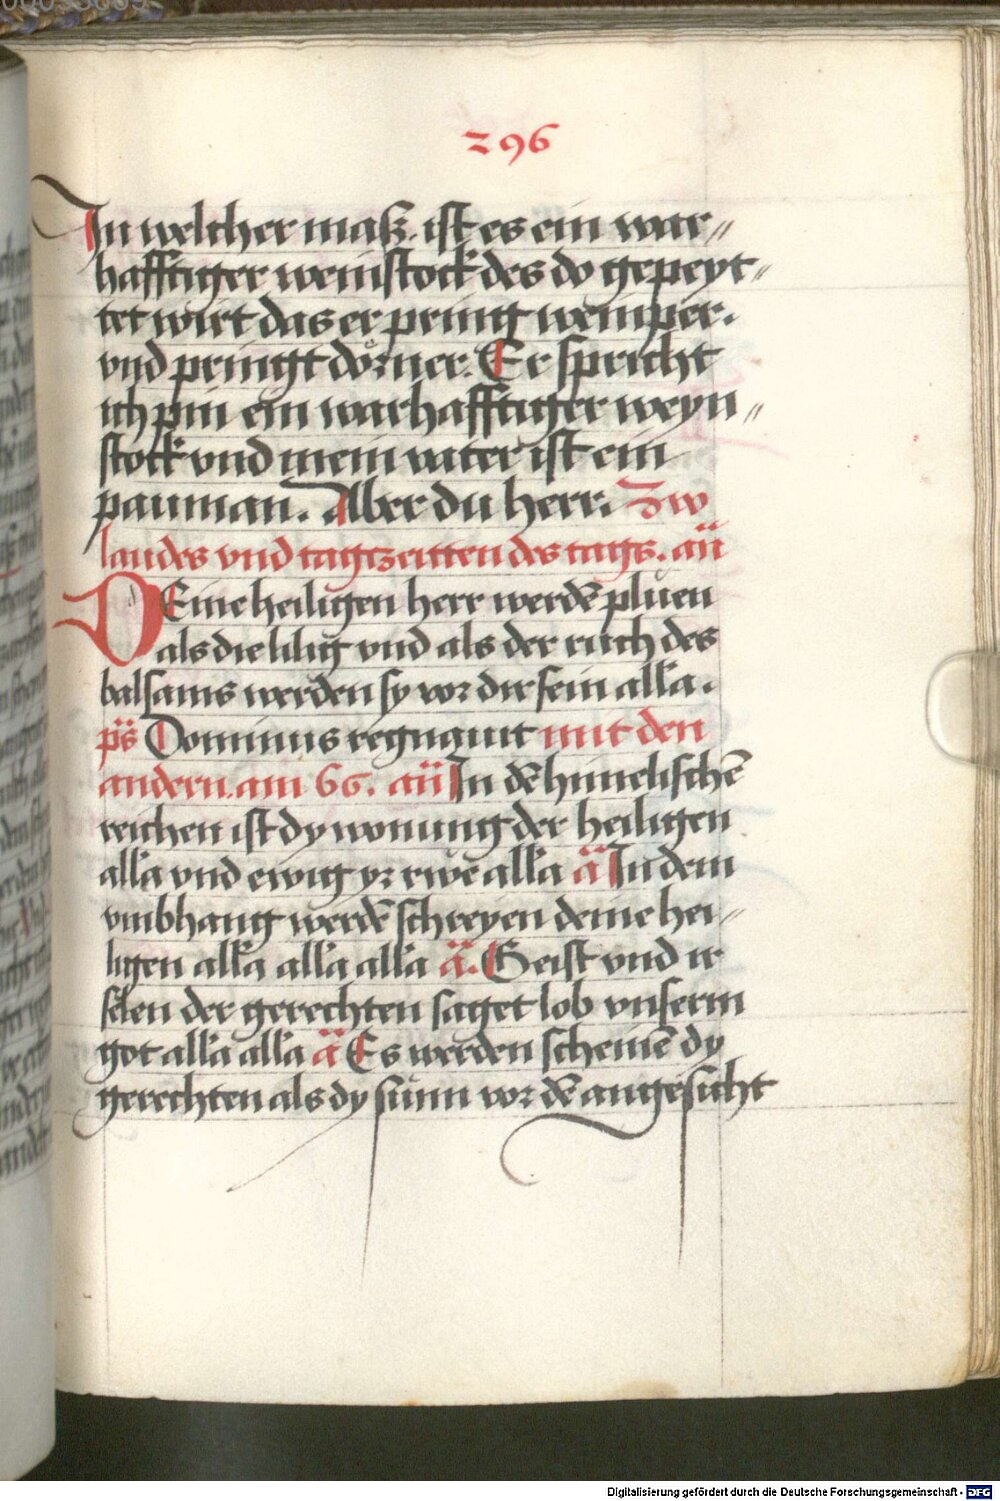 296
In welcher maß. ist es ein war〃
hafftiger weinstock des do gepeyt〃
tet wirt das er pring weinper.
vnd pringt dörner. Er spricht
ich pin ein warhafftiger weyn〃
stock vnd mein vater ist ein
pauman. Aber du herr. Zw
laudes vnd tagtzeitten des tags. an̈
DEine heiligen herr werdē plüen
als die lilig vnd als der ruch des
balsams werden sy vor dir sein all'a.
ps̈ Dominus regnauit mit den
andern am 66. an̈ In dē himelischē
reichen ist dy wonung der heiligen
all'a vnd ewig yr rwe all'a ä In dem
vmbhang werdē schreyen deine hei〃
ligen all'a all'a all'a ä. Geist vnd ir
selen der gerechten saget lob vnserm
got all'a all'a ä Es werden scheinē dy
gerechten als dy sunn vor dē angesicht
Digitalisierung gefördert durch die Deutsche Forschungsgemeinschaft - DFG